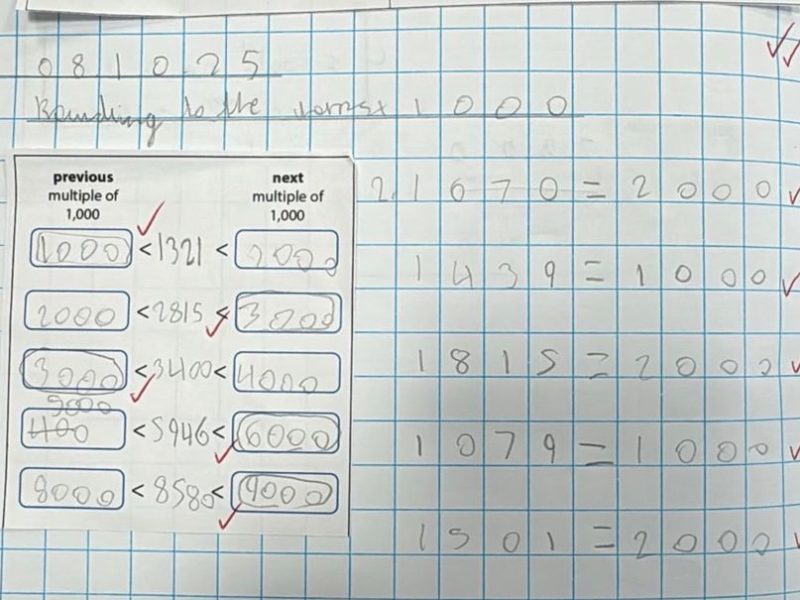 081025
Rounding to the nornst 1000
previous multiple of 1,000
next multiple of 1,000
1000 < 1321 < 2000
2000 < 2815 < 3000
3000 < 3400 < 4000
5000
400 < 5946 < 6000
8000 < 8580 < 9000
2. 1670 = 2000
1439 = 1000
1815 = 2000
1079 = 1000
1501 = 2000